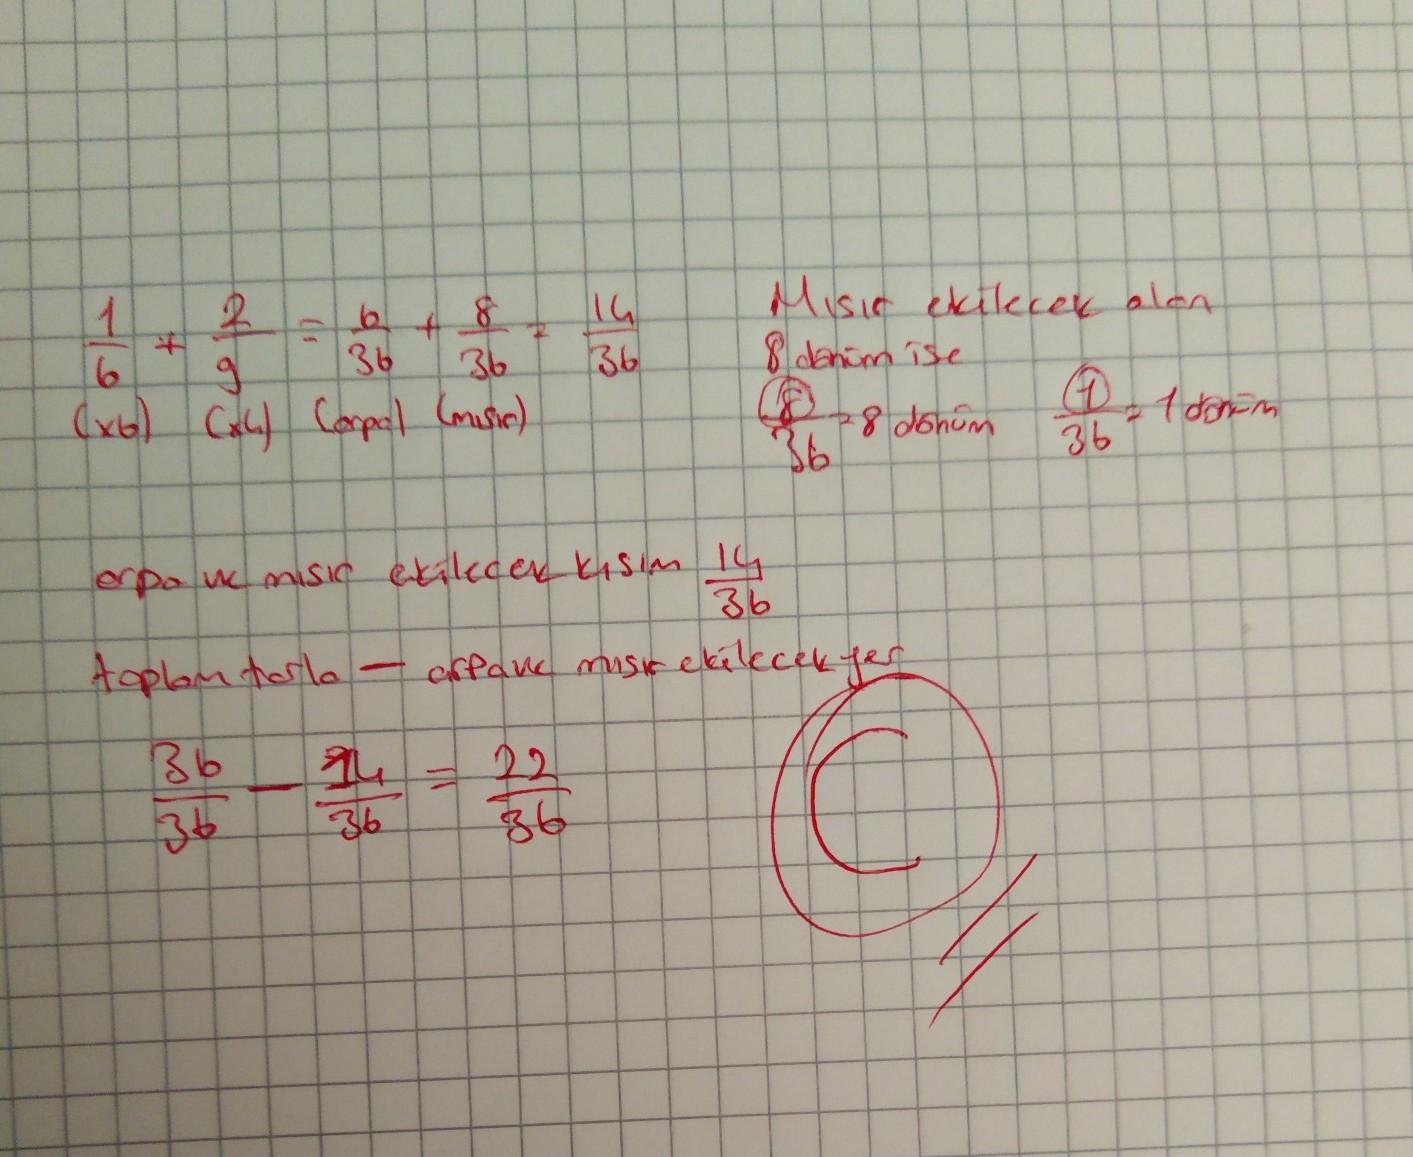 1/6 + 2/9 = 6/36 + 8/36 = 14/36
(x6) (x4) (arpa) (mısır)
Mısır ekilecek alan
8 dönüm ise
8/36 = 8 dönüm 1/36 = 1 dönüm
arpa ve mısır ekilecek kısım 14/36
toplam tarla — arpa ve mısır ekilecek yer
36/36 — 14/36 = 22/36
C